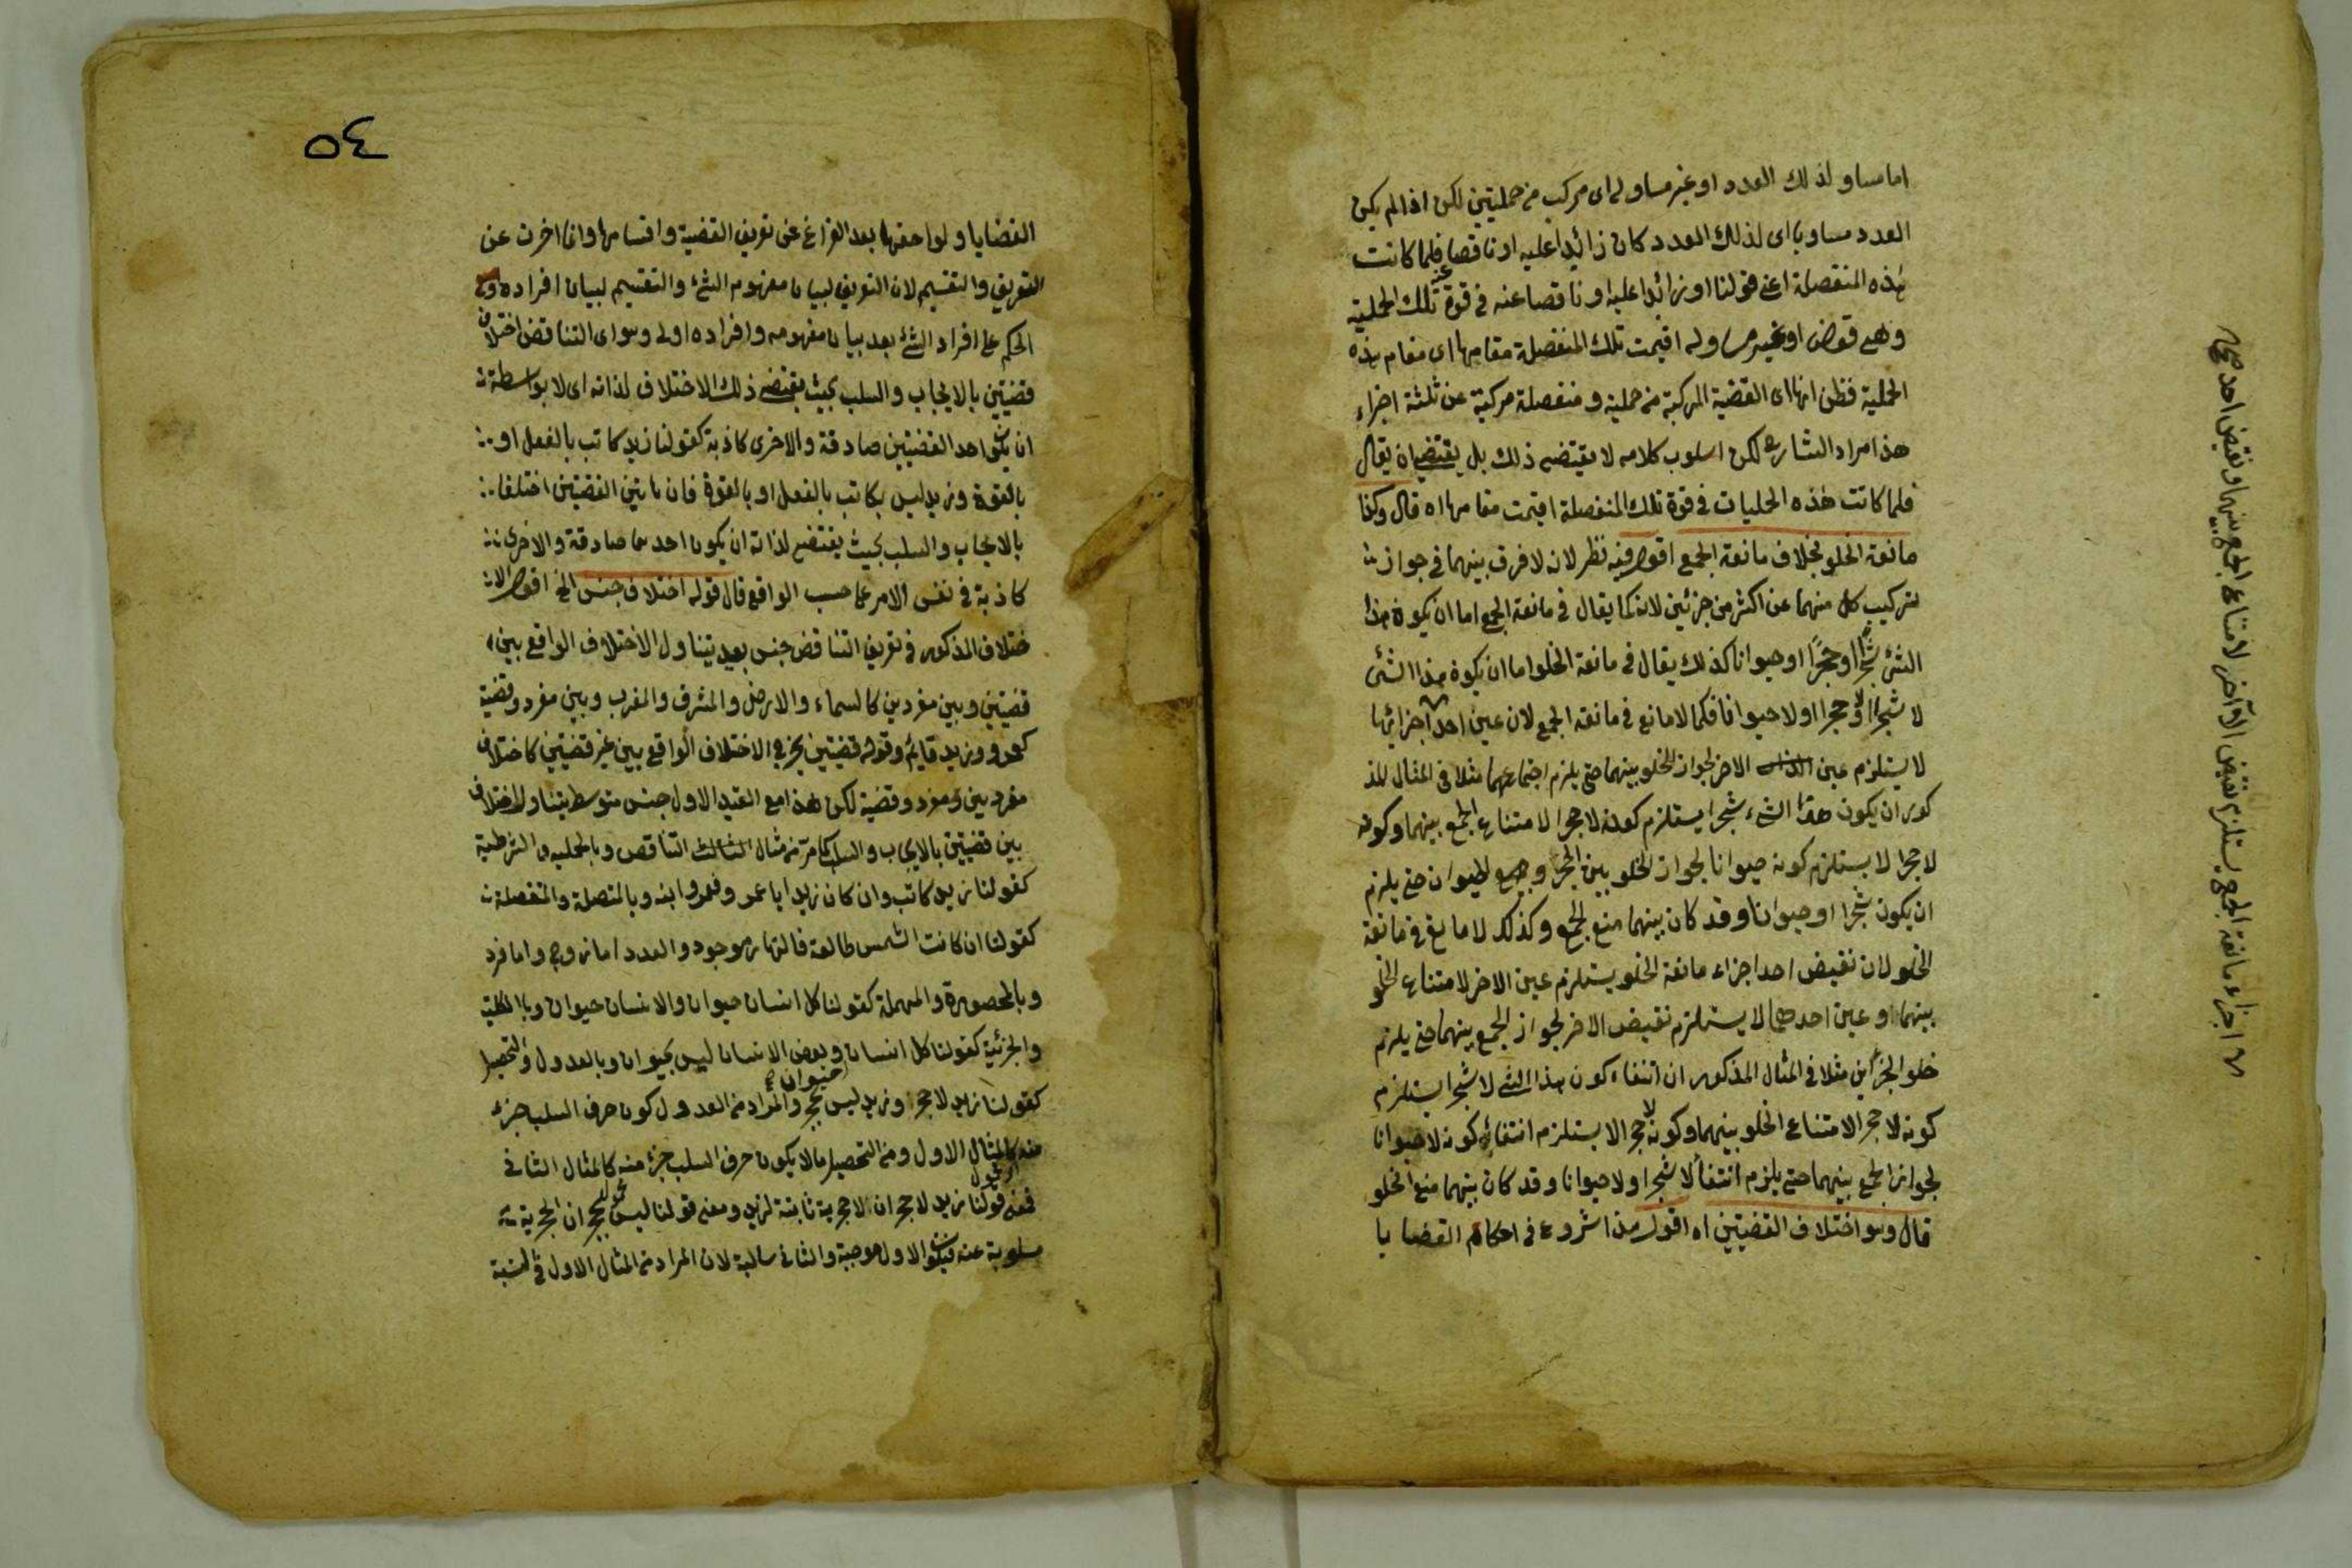 اما مساو لذلك العدد او غير مساو له اى مركب من حمليتين لكن اذا لم يكن
العدد مساويا اى لذلك العدد كان زائدا عليه او ناقصا عنه فلما كانت
هذه المنفصلة اعنى قولنا او زائدا عليه او ناقصا عنه فى قوة تلك الحملية
وهى قوله او غير مساو له اقيمت تلك المنفصلة مقامها اى مقام هذه
الحملية فظن انها اى القضية المركبة من حملية ومنفصلة مركبة عن ثلثة اجزاء
هذا مراد الشارح لكن اسلوب كلامه لا يقتضى ذلك بل يقتضى ان يقال
فلما كانت هذه الحمليات فى قوة تلك المنفصلة اقيمت مقامها اه قال وكذا
مانعة الخلو بخلاف مانعة الجمع اقول فيه نظر لانه لا فرق بينهما فى جواز
تركيب كل منهما عن اكثر من جزئين لانه كما يقال فى مانعة الجمع اما ان يكون هذا
الشئ شجرا او حجرا او حيوانا كذلك يقال فى مانعة الخلو اما ان يكون هذا الشئ
لا شجرا او لا حجرا او لا حيوانا فكما لا مانع فى مانعة الجمع لان عين احد اجزائها
لا يستلزم عين الاخر لجواز الخلو بينهما حتى يلزم اجتماعهما مثلا فى المثال المذ
كور ان يكون هذا الشئ شجرا يستلزم كونه لا حجرا لامتناع الجمع بينهما وكونه
لا حجرا لا يستلزم كونه حيوانا لجواز الخلو بين الحجر و الحيوان حتى يلزم
ان يكون شجرا او حيوانا وقد كان بينهما منع الجمع وكذلك لا مانع فى مانعة
الخلو لان نقيض احد اجزاء مانعة الخلو يستلزم عين الاخر لامتناع الخلو
بينهما و عين احدهما لا يستلزم نقيض الاخر لجواز الجمع بينهما حتى يلزم
خلو الجزأين مثلا فى المثال المذكور ان انتفاء كون هذا الشئ لا شجرا يستلزم
كونه لا حجرا لامتناع الخلو بينهما وكونه لا حجرا لا يستلزم انتفاء كونه لا حيوانا
لجواز الجمع بينهما حتى يلزم انتفاء لا شجرا ولا حيوانا وقد كان بينهما منع الخلو
قال وهو اختلاف القضيتين اه اقول هذا شروع فى احكام القضايا
اجزاء مانعة الجمع يستلزم نقيض الآخر لامتناع الجمع بينهما ونقيض احدهما
٥٤
القضايا ولواحقها بعد الفراغ عن تعريف القضية واقسامها وانما اخرت عن
التعريف والتقسيم لان التعريف لبيان مفهوم الشئ والتقسيم لبيان افراده و
الحكم على افراد الشئ بعد بيان مفهومه وافراده اولى وهو اى التناقض اختلاف
قضيتين بالايجاب والسلب بحيث يقتضى ذلك الاختلاف لذاته اى لا بواسطة
ان يكون احد القضيتين صادقة والاخرى كاذبة كقولنا زيد كاتب بالفعل او
بالقوة وزيد ليس بكاتب بالفعل او بالقوة فان هاتين القضيتين اختلفا
بالايجاب والسلب بحيث يقتضى لذاته ان يكون احدهما صادقة والاخرى
كاذبة فى نفس الامر على حسب الواقع قال قوله اختلاف جنس الخ اقول الا
ختلاف المذكور فى تعريف التناقض جنس بعيد يتناول الاختلاف الواقع بين
قضيتين وبين مفردين كالسماء والارض والمشرق والمغرب وبين مفرد وقضية
كعمرو وزيد قايم وقوله قضيتين يخرج الاختلاف الواقع بين غير قضيتين كاختلاف
مفردين ومفرد وقضية لكن هذا مع القيد الاول جنس متوسط يتناول الاختلاف
بين قضيتين بالايجاب والسلب كما مر من مثال التناقض وبالحملية والشرطية
كقولنا زيد كاتب وان كان زيد ابا عمرو فعمرو ابنه وبالمتصلة والمنفصلة
كقولنا ان كانت الشمس طالعة فالنهار موجود والعدد اما زوج واما فرد
وبالمحصورة والمهملة كقولنا كل انسان حيوان والانسان حيوان وبالكلية
والجزئية كقولنا كل انسان حيوان وبعض الانسان ليس بحيوان وبالعدول والتحصيل
كقولنا زيد لا حجر وزيد ليس بحجر والمراد من العدول كون حرف السلب جزء
منه كالمثال الاول ومن التحصيل ما لا يكون حرف السلب جزء منه كالمثال الثانى
فمعنى قولنا زيد لا حجر ان اللاحجرية ثابتة لزيد ومعنى قولنا ليس بحجر ان الحجرية
مسلوبة عنه فيكون الاول موجبة والثانى سالبة لان المراد من المثال الاول فى النسبة